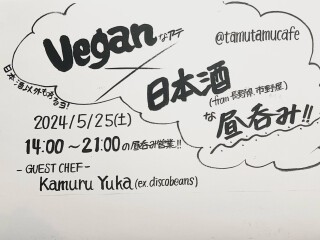 Veganなアテ
@tamutamucafe
日本酒以外もあるヨ!
日本酒
(from 長野県 市野屋)
な昼呑み!!
2024/5/25(土)
14:00~21:00の昼呑み営業!!
-GUEST CHEF-
Kamuru Yuka (ex. discobeans)